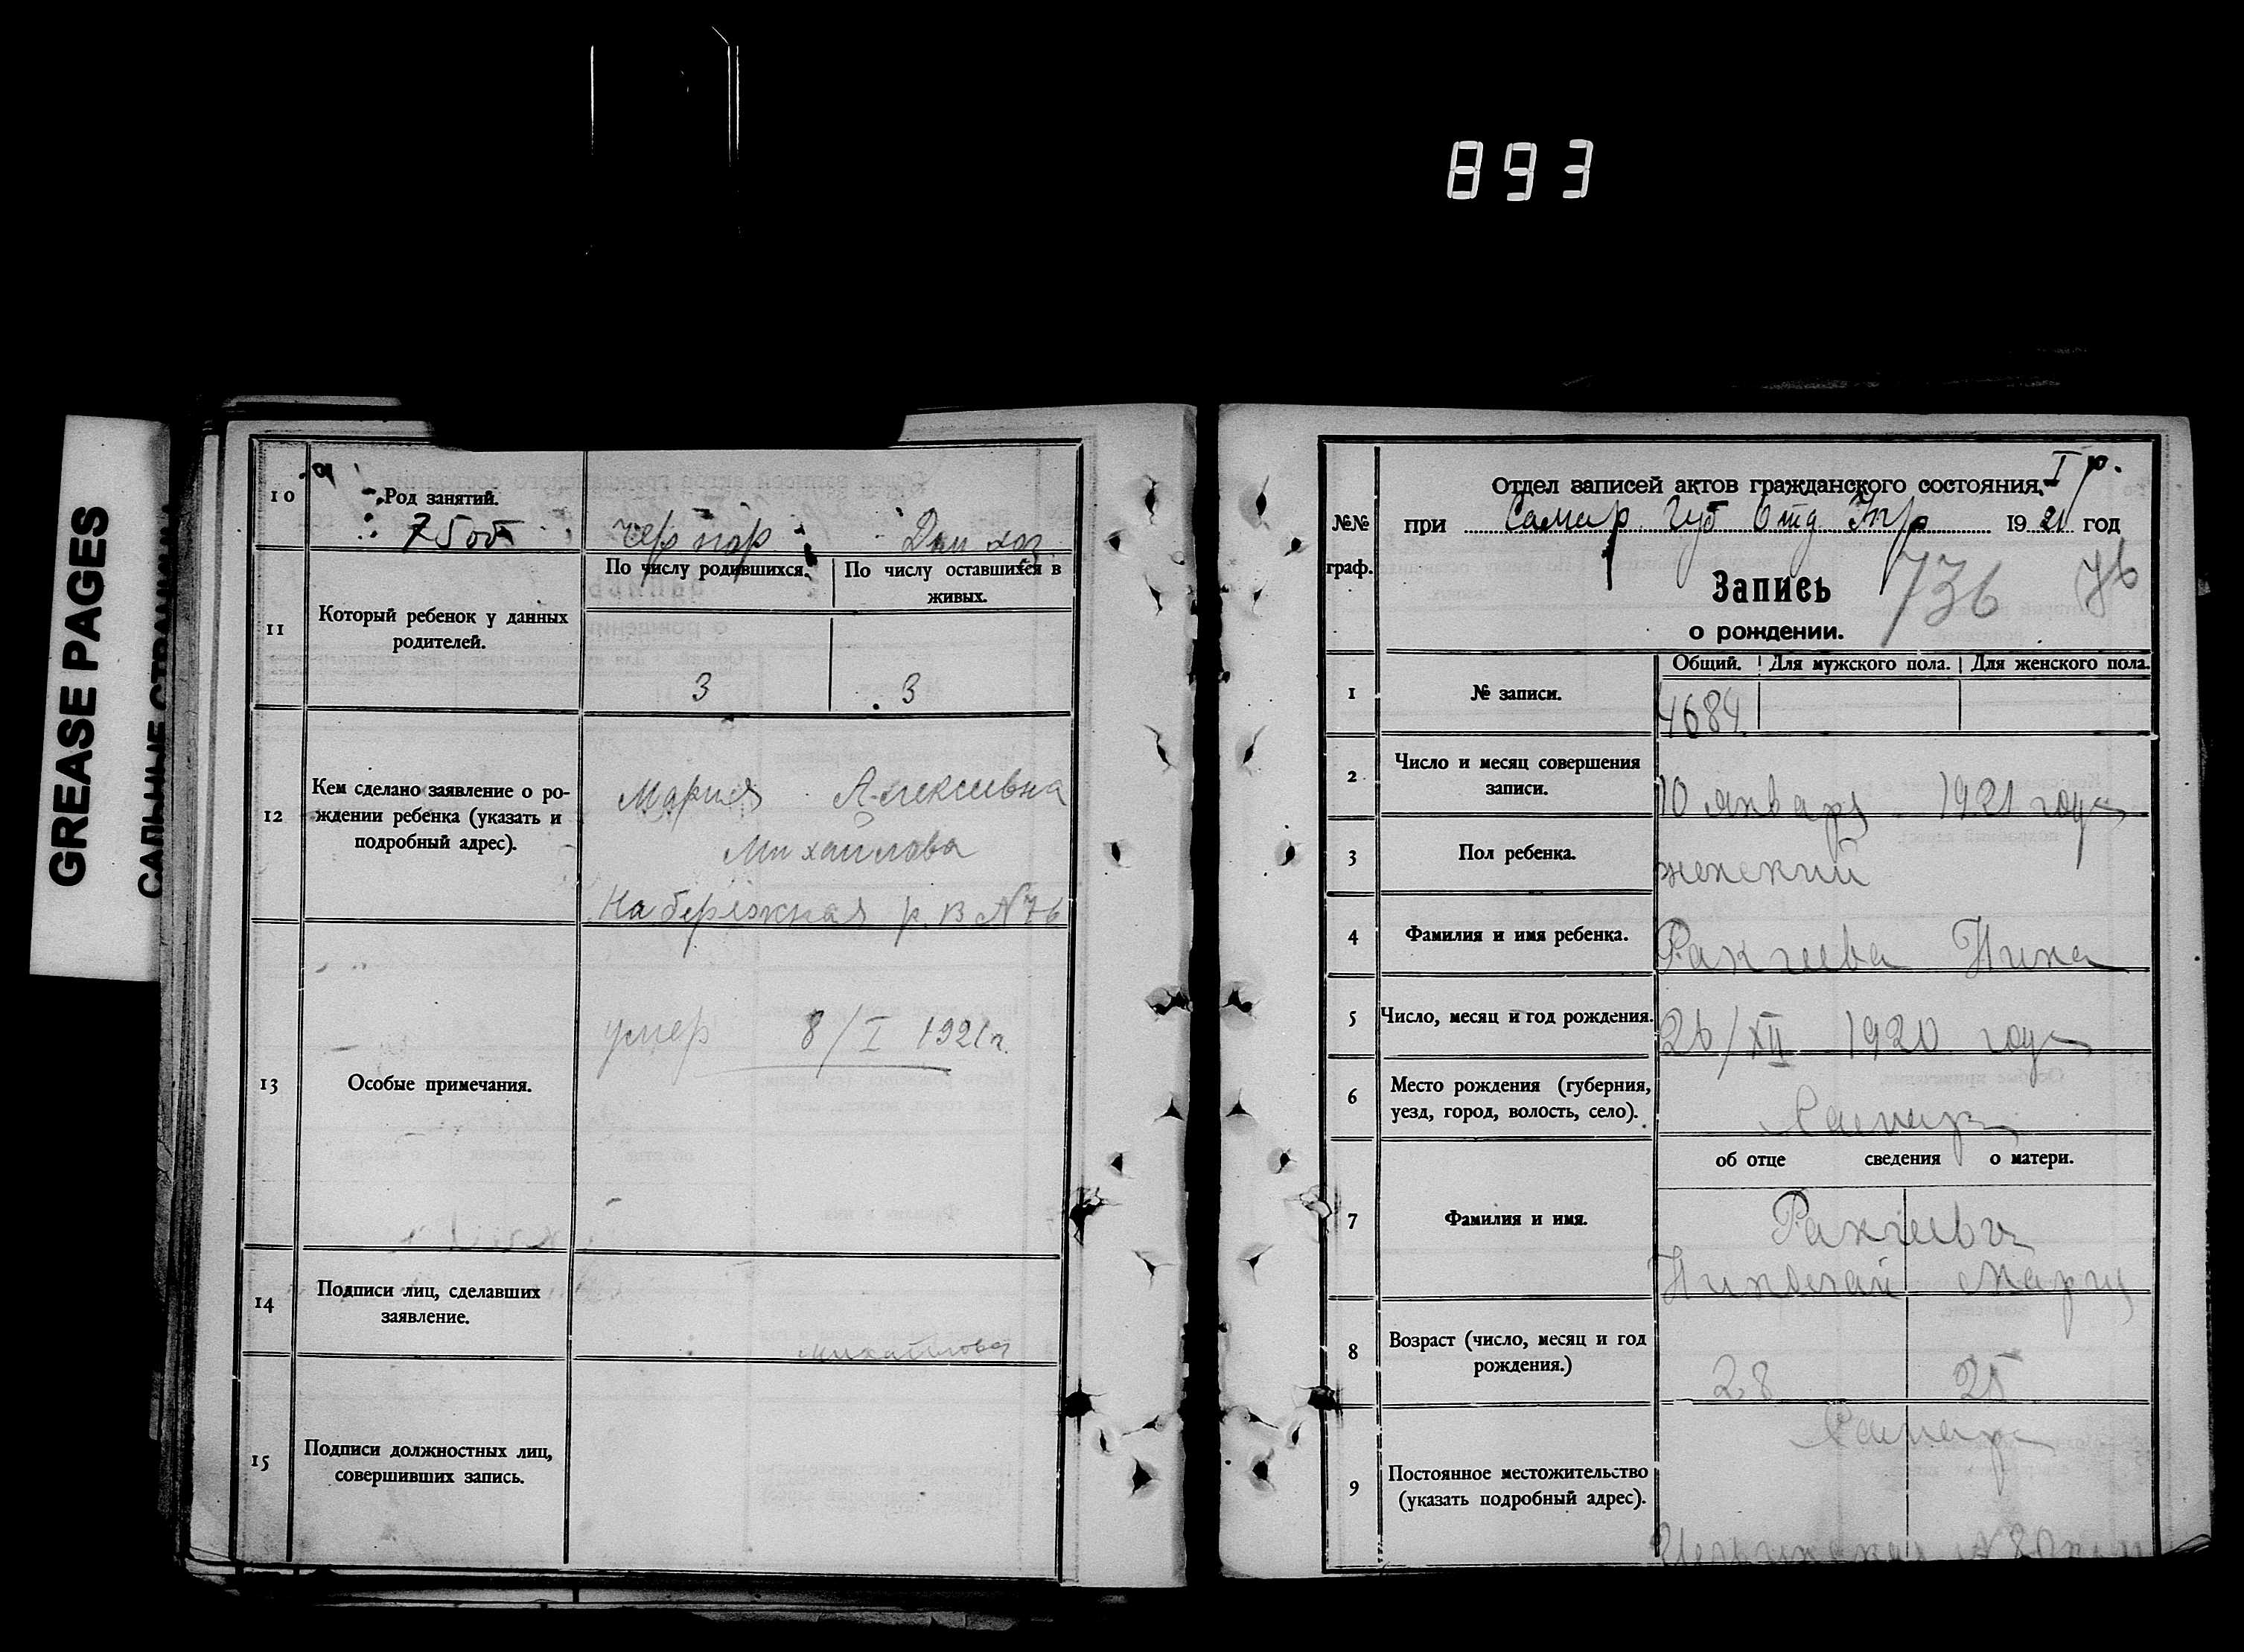 893
GREASE PAGES
САЛЬНЫЕ СТРАНИЦЫ
10
Род занятий.
чер раб Дом хоз
11
Который ребенок у данных
родителей.
По числу родившихся.
По числу оставшихся в
живых.
3
3
12
Кем сделано заявление о ро-
ждении ребенка (указать и
подробный адрес).
Мария Алексеевна
Михайлова
Набережная р. В №76
13
Особые примечания.
умер 8/I 1921 г.
14
Подписи лиц, сделавших
заявление.
Михайлова
15
Подписи должностных лиц,
совершивших запись.
I р.
Отдел записей актов гражданского состояния,
№№
граф.
при Самар. Губ Отд Упр 1921 год
Запись
736
76
о рождении.
Общий.
Для мужского пола.
Для женского пола.
1
№ записи.
4684
2
Число и месяц совершения
записи.
10 января 1921 года
3
Пол ребенка.
женский
4
Фамилия и имя ребенка.
Ракчеева Нина
5
Число, месяц и год рождения.
26/XII 1920 года
6
Место рождения (губерния,
уезд, город, волость, село).
Самара
об отце сведения о матери.
7
Фамилия и имя.
Ракчеевы
Николай Мария
8
Возраст (число, месяц и год
рождения.)
28
25
9
Постоянное местожительство
(указать подробный адрес).
Самара